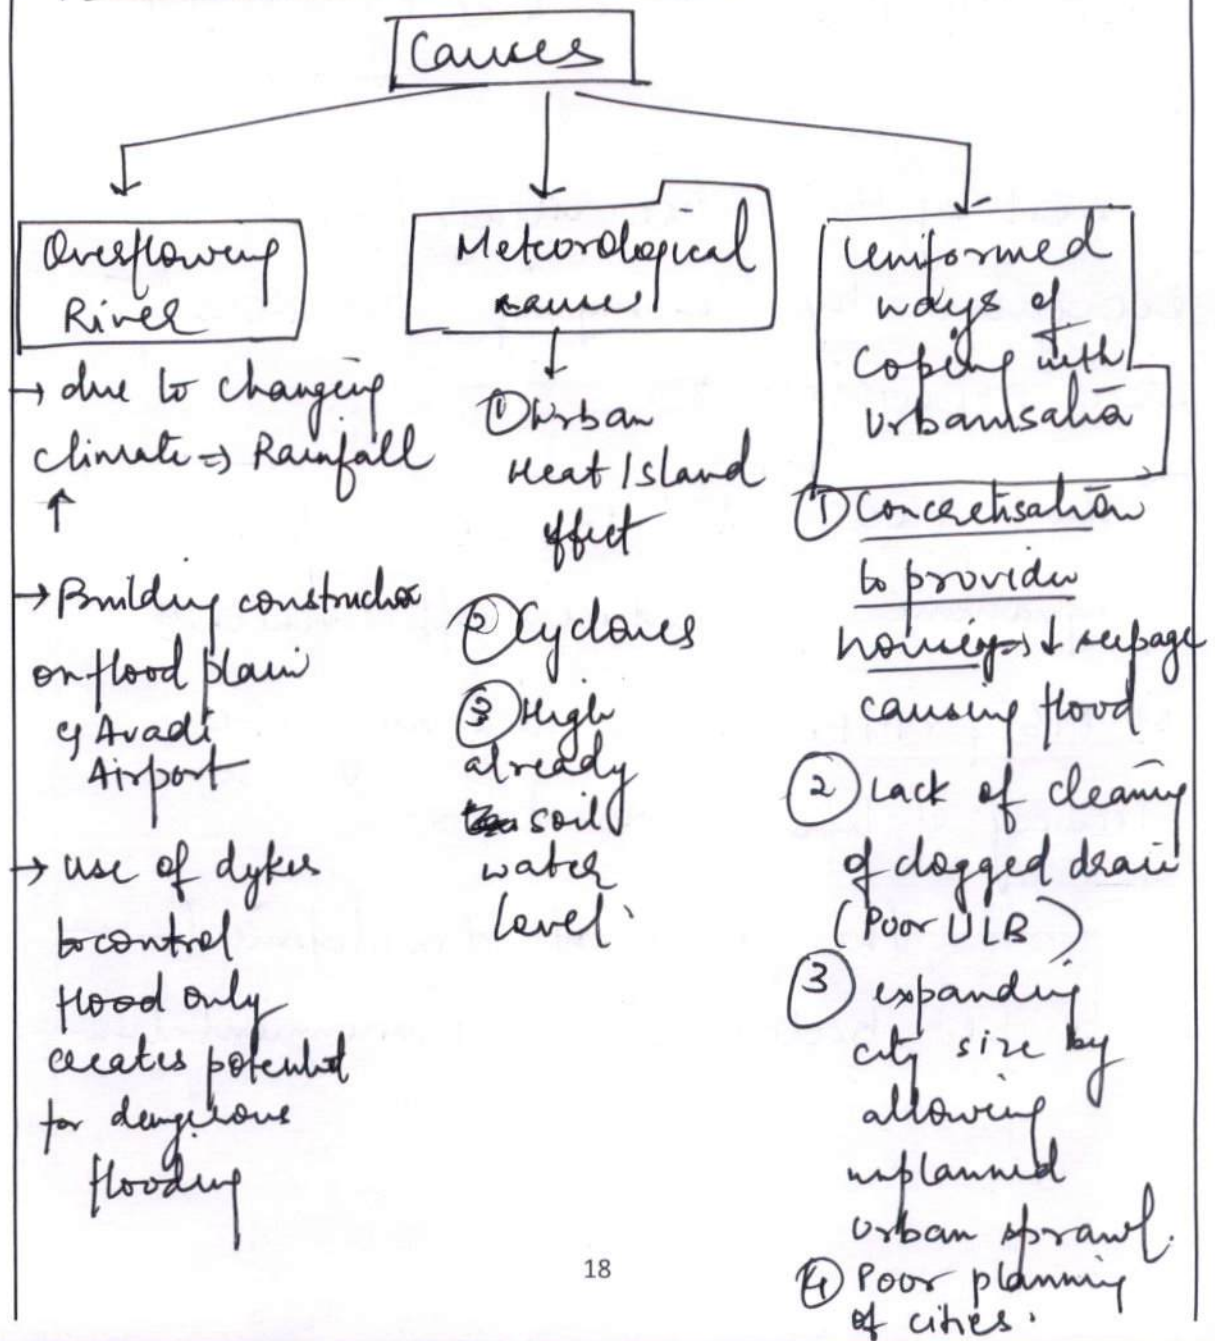 Causes
Overflowing
River
→ due to changing
climate ⇒ Rainfall
↑
→ Building construction
on flood plain
eg Avadi
Airport
→ use of dykes
to control
flood only
creates potential
for dangerous
flooding
Meteorological
causes
① Urban
Heat Island
effect
② Cyclones
③ High
already
soil
water
level.
Uniformed
ways of
coping with
Urbanisation
① Concretisation
to provide
housing ⇒ ↓ seepage
causing flood
② Lack of cleaning
of clogged drain
(Poor ULB)
③ expanding
city size by
allowing
unplanned
urban sprawl.
④ Poor planning
of cities.
18